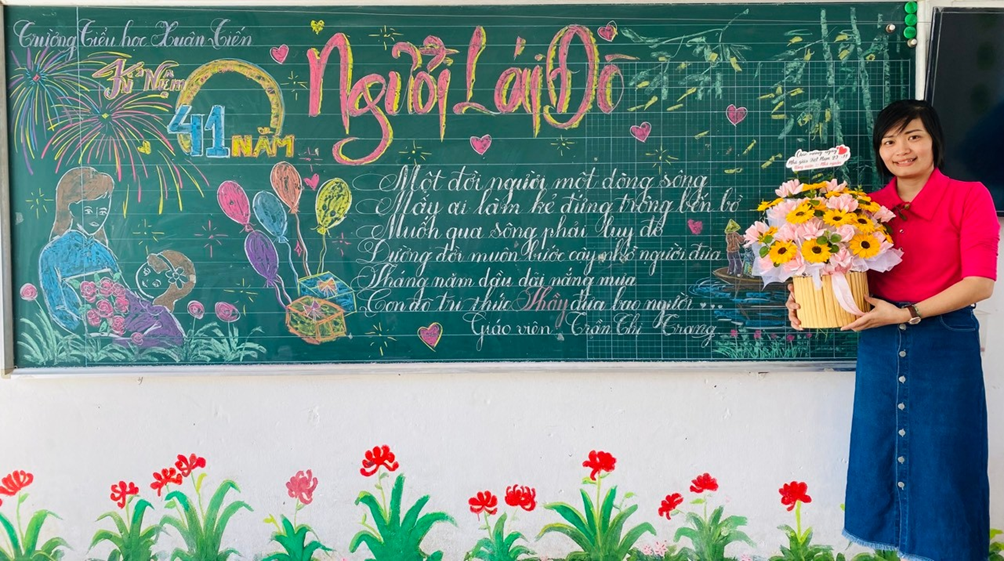 Trường Tiểu học Xuân Tiến
Kỉ Niệm
41 NĂM
Người Lái Đò
Một đời người một dòng sông
Mấy ai làm kẻ đứng trông bến bờ
Muốn qua sông phải lụy đò
Đường đời muôn bước cậy nhờ người đưa
Tháng năm dầu dãi nắng mưa
Con đò tri thức Thầy đưa bao người
Giáo viên: Trần Thị Trang
Nhà giáo Việt Nam 20